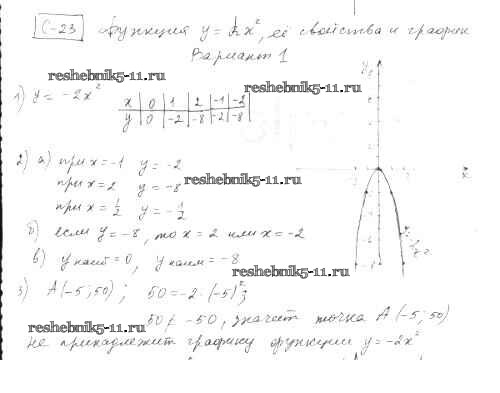 С-23 Функция y = kx², её свойства и график
Вариант 1
reshebnik5-11.ru
reshebnik5-11.ru
1) y = -2x²
x | 0 | 1 | 2 | -1 | -2
y | 0 | -2 | -8 | -2 | -8
2) а) при x = -1 y = -2
при x = 2 y = -8
reshebnik5-11.ru
при x = 1/2 y = -1/2
б) если y = -8, то x = 2 или x = -2
в) y наиб = 0, y наим = -8
reshebnik5-11.ru
3) А(-5; 50); 50 = -2·(-5)²;
50 ≠ -50, значит точка А(-5; 50)
reshebnik5-11.ru
не принадлежит графику функции y = -2x²
y
x